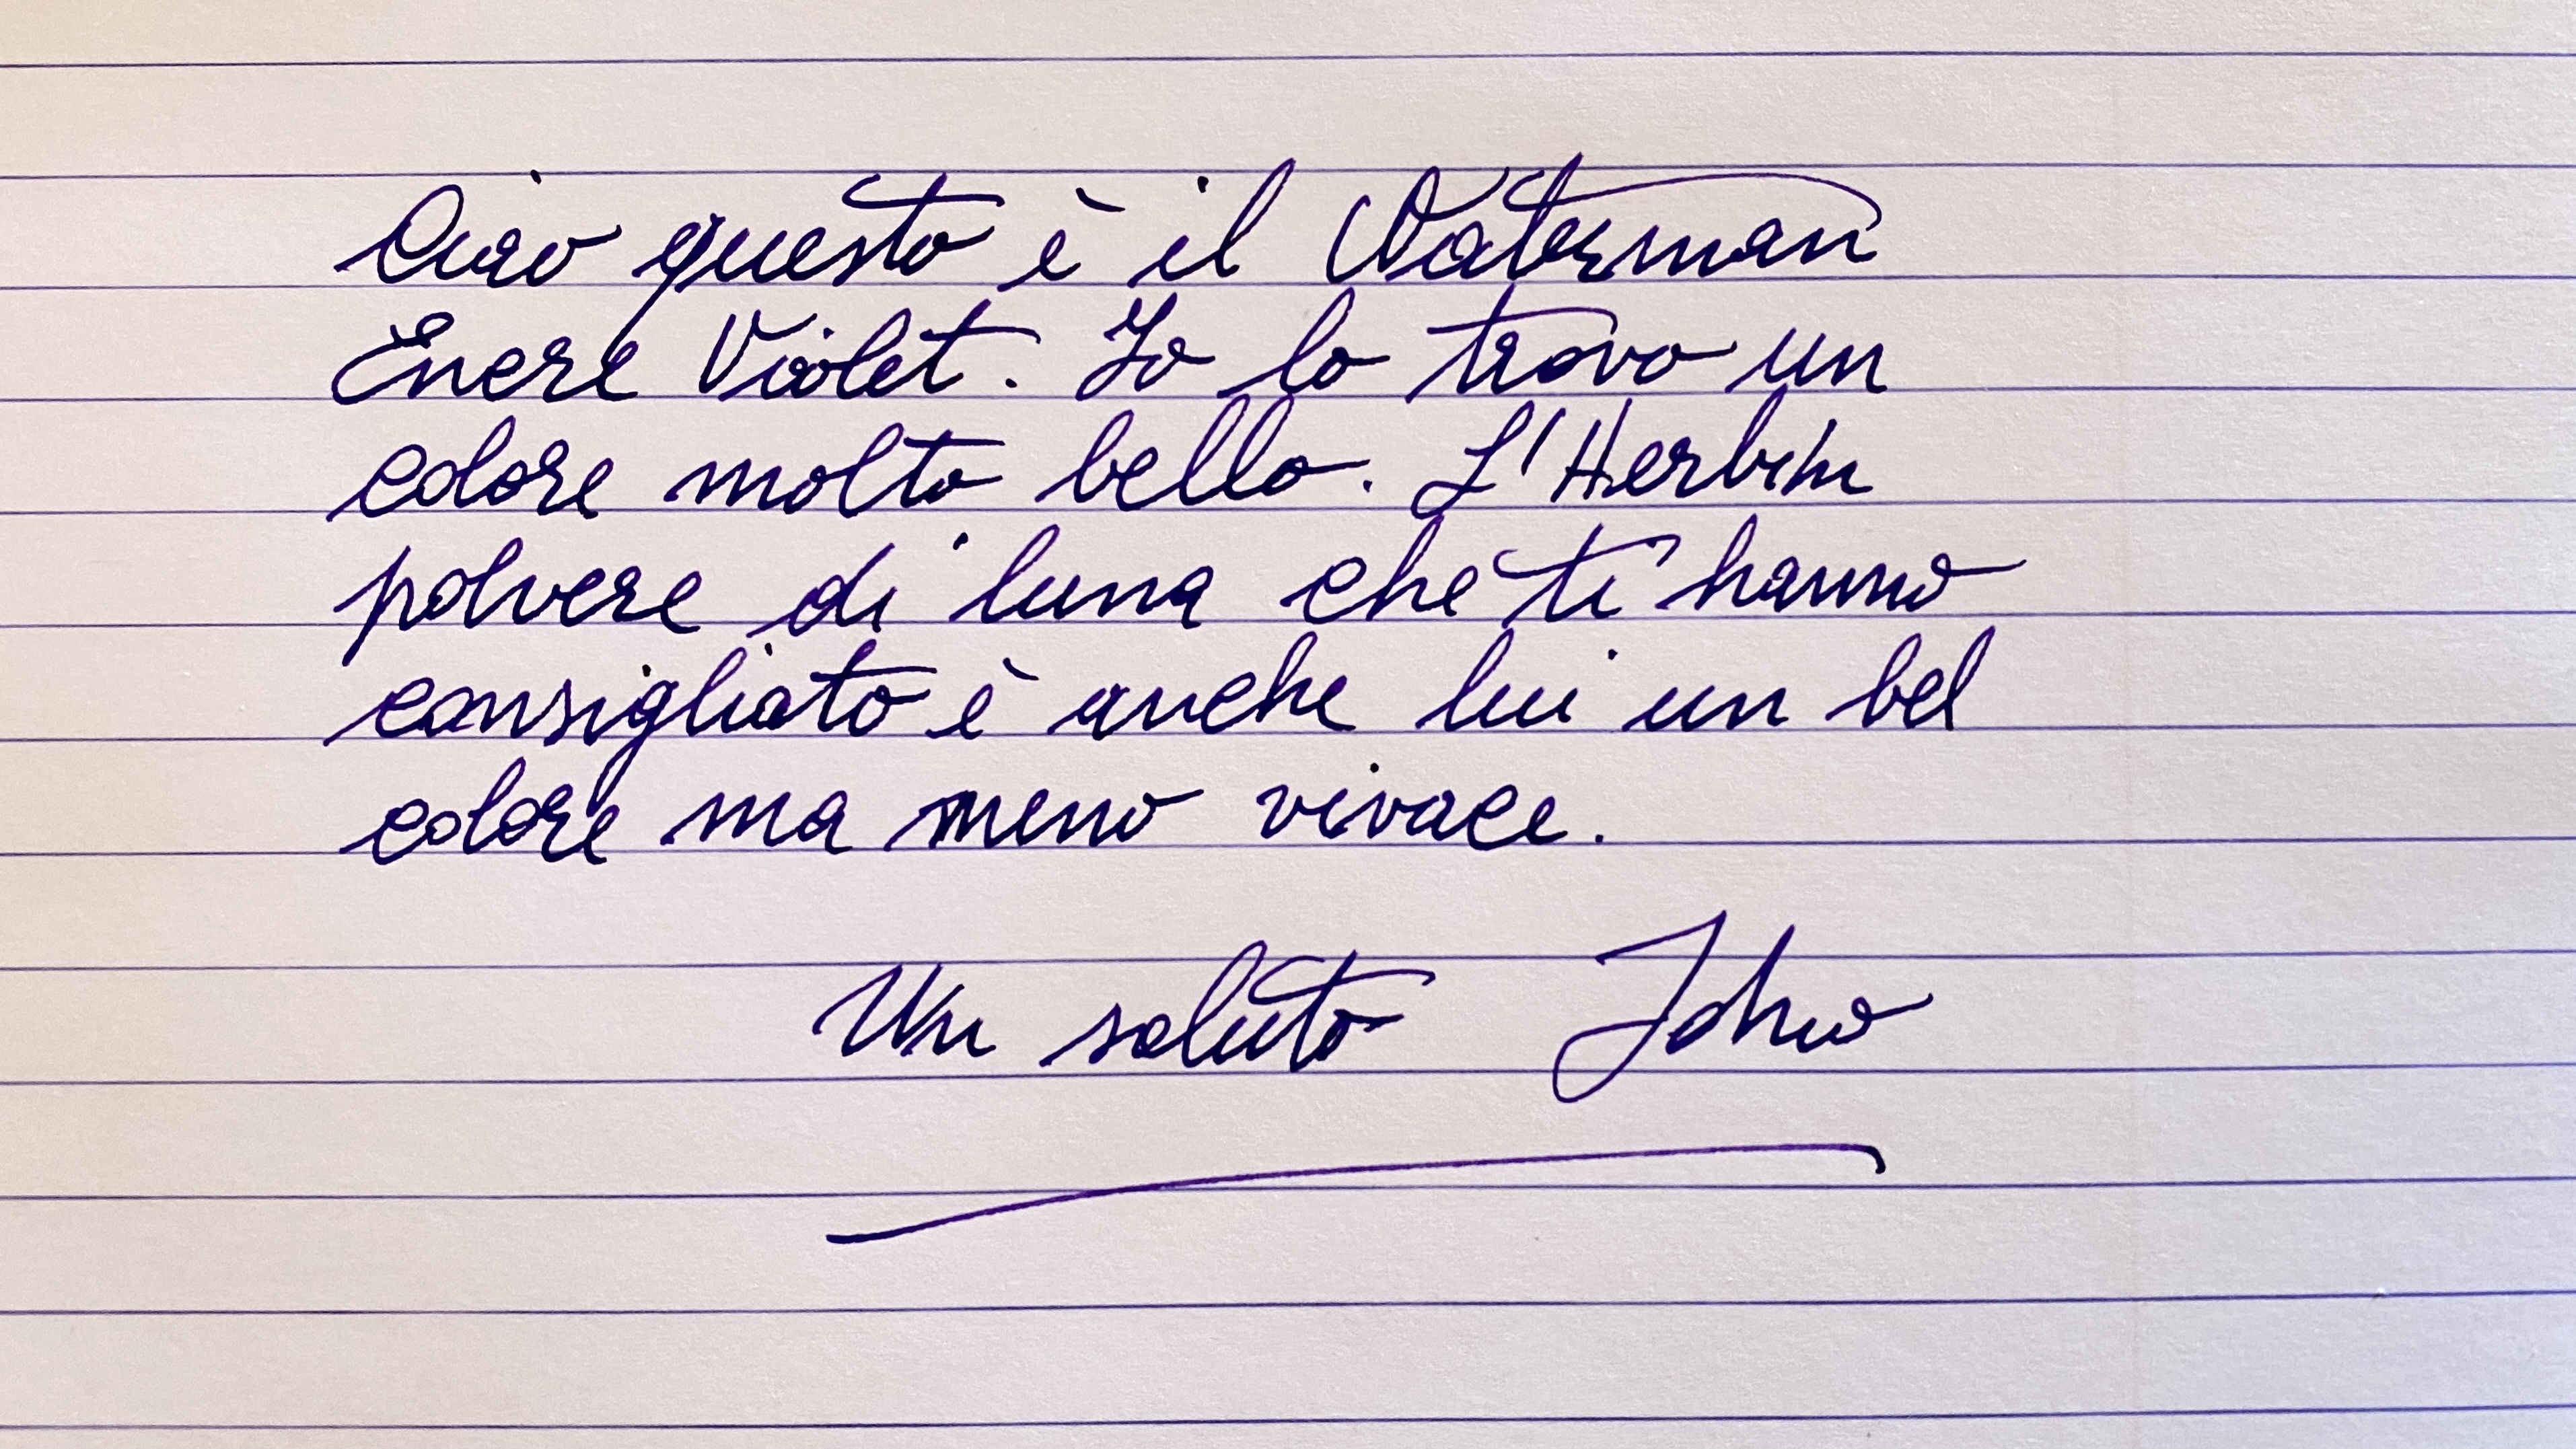 Ciao questo è il Waterman
Encre Violet. Io lo trovo un
colore molto bello. L'Herbin
polvere di luna che ti hanno
consigliato è anche lui un bel
colore ma meno vivace.
Un saluto